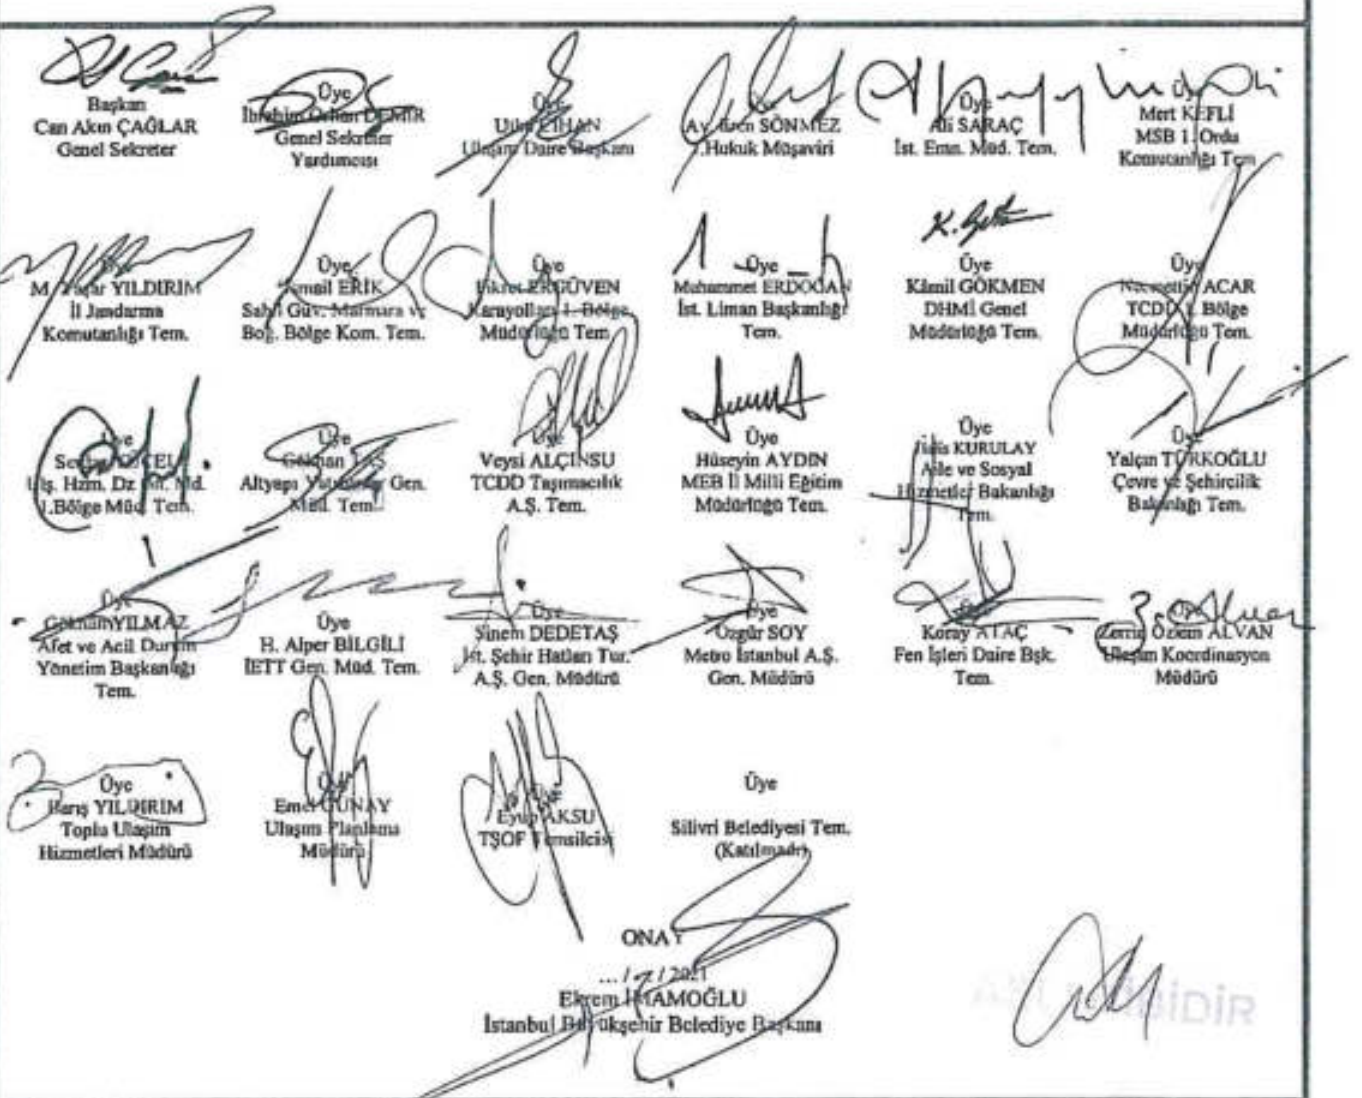 Başkan
Can Akın ÇAĞLAR
Genel Sekreter
Üye
İbrahim Orhan DEMİR
Genel Sekreter
Yardımcısı
Üye
Utku CİHAN
Ulaşım Daire Başkanı
Av. Eren SÖNMEZ
1.Hukuk Müşaviri
Üye
Ali SARAÇ
İst. Emn. Müd. Tem.
Üye
Mert KEFLİ
MSB 1. Ordu
Komutanlığı Tem
Üye
M. Yaşar YILDIRIM
İl Jandarma
Komutanlığı Tem.
Üye
İsmail ERİK
Sahil Güv. Marmara ve
Boğ. Bölge Kom. Tem.
Üye
Fikret ERGÜVEN
Karayolları 1. Bölge
Müdürlüğü Tem
Üye
Muhammet ERDOĞAN
İst. Liman Başkanlığı
Tem.
Üye
Kâmil GÖKMEN
DHMİ Genel
Müdürlüğü Tem.
Üye
Necmettin ACAR
TCDD 1. Bölge
Müdürlüğü Tem.
Üye
Ulş. Hzm. Dz Md.
1.Bölge Müd. Tem.
Üye
Gökhan
Altyapı Yatırımlar Gen.
Müd. Tem.
Üye
Veysi ALÇINSU
TCDD Taşımacılık
A.Ş. Tem.
Üye
Hüseyin AYDIN
MEB İl Milli Eğitim
Müdürlüğü Tem.
Üye
KURULAY
Aile ve Sosyal
Hizmetler Bakanlığı
Tem.
Üye
Yalçın TÜRKOĞLU
Çevre ve Şehircilik
Bakanlığı Tem.
Üye
Gökhan YILMAZ
Afet ve Acil Durum
Yönetim Başkanlığı
Tem.
Üye
H. Alper BİLGİLİ
İETT Gen. Müd. Tem.
Üye
Sinem DEDETAŞ
İst. Şehir Hatları Tur.
A.Ş. Gen. Müdürü
Üye
Özgür SOY
Metro İstanbul A.Ş.
Gen. Müdürü
Üye
Koray ATAÇ
Fen İşleri Daire Bşk.
Tem.
Üye
Özlem ALVAN
Ulaşım Koordinasyon
Müdürü
Üye
Barış YILDIRIM
Toplu Ulaşım
Hizmetleri Müdürü
Üye
Emel GÜNAY
Ulaşım Planlama
Müdürü
Üye
Eyüp AKSU
TŞOF Temsilcisi
Üye
Silivri Belediyesi Tem.
(Katılmadı)
ONAY
.../ /2021
Ekrem İMAMOĞLU
İstanbul Büyükşehir Belediye Başkanı